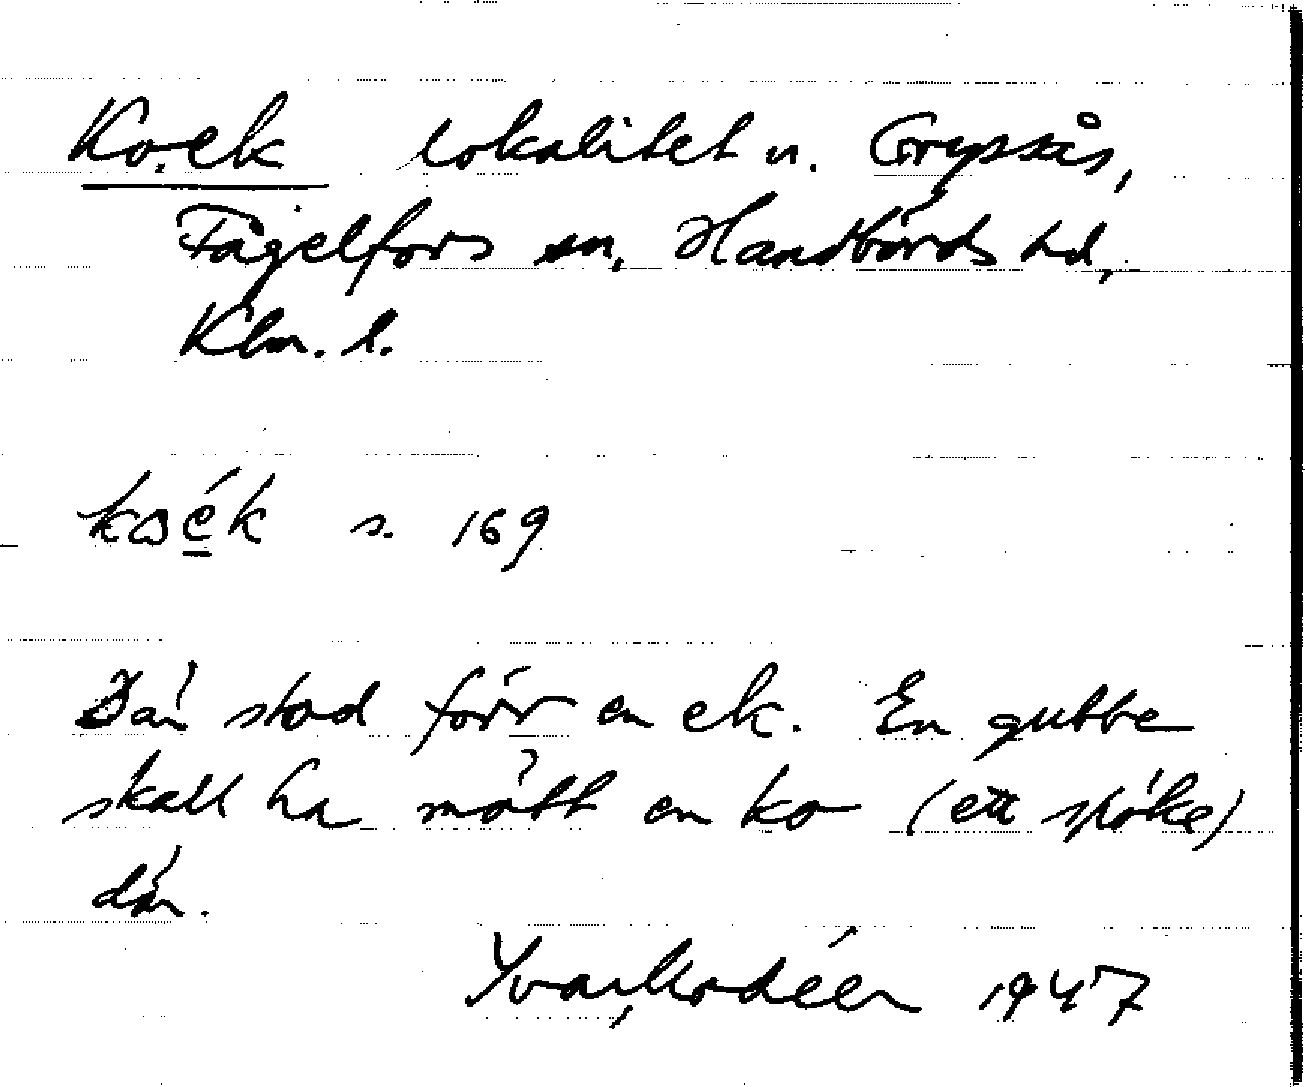 Ko-ek lokalitet u. Gryssås,
Fågelfors sn, Handbörds hd,
Klm. l.
koék s. 169
Där stod förr en ek. En gubbe
skall ha mött en ko (ett spöke)
där.
Yvar Modéer 1947